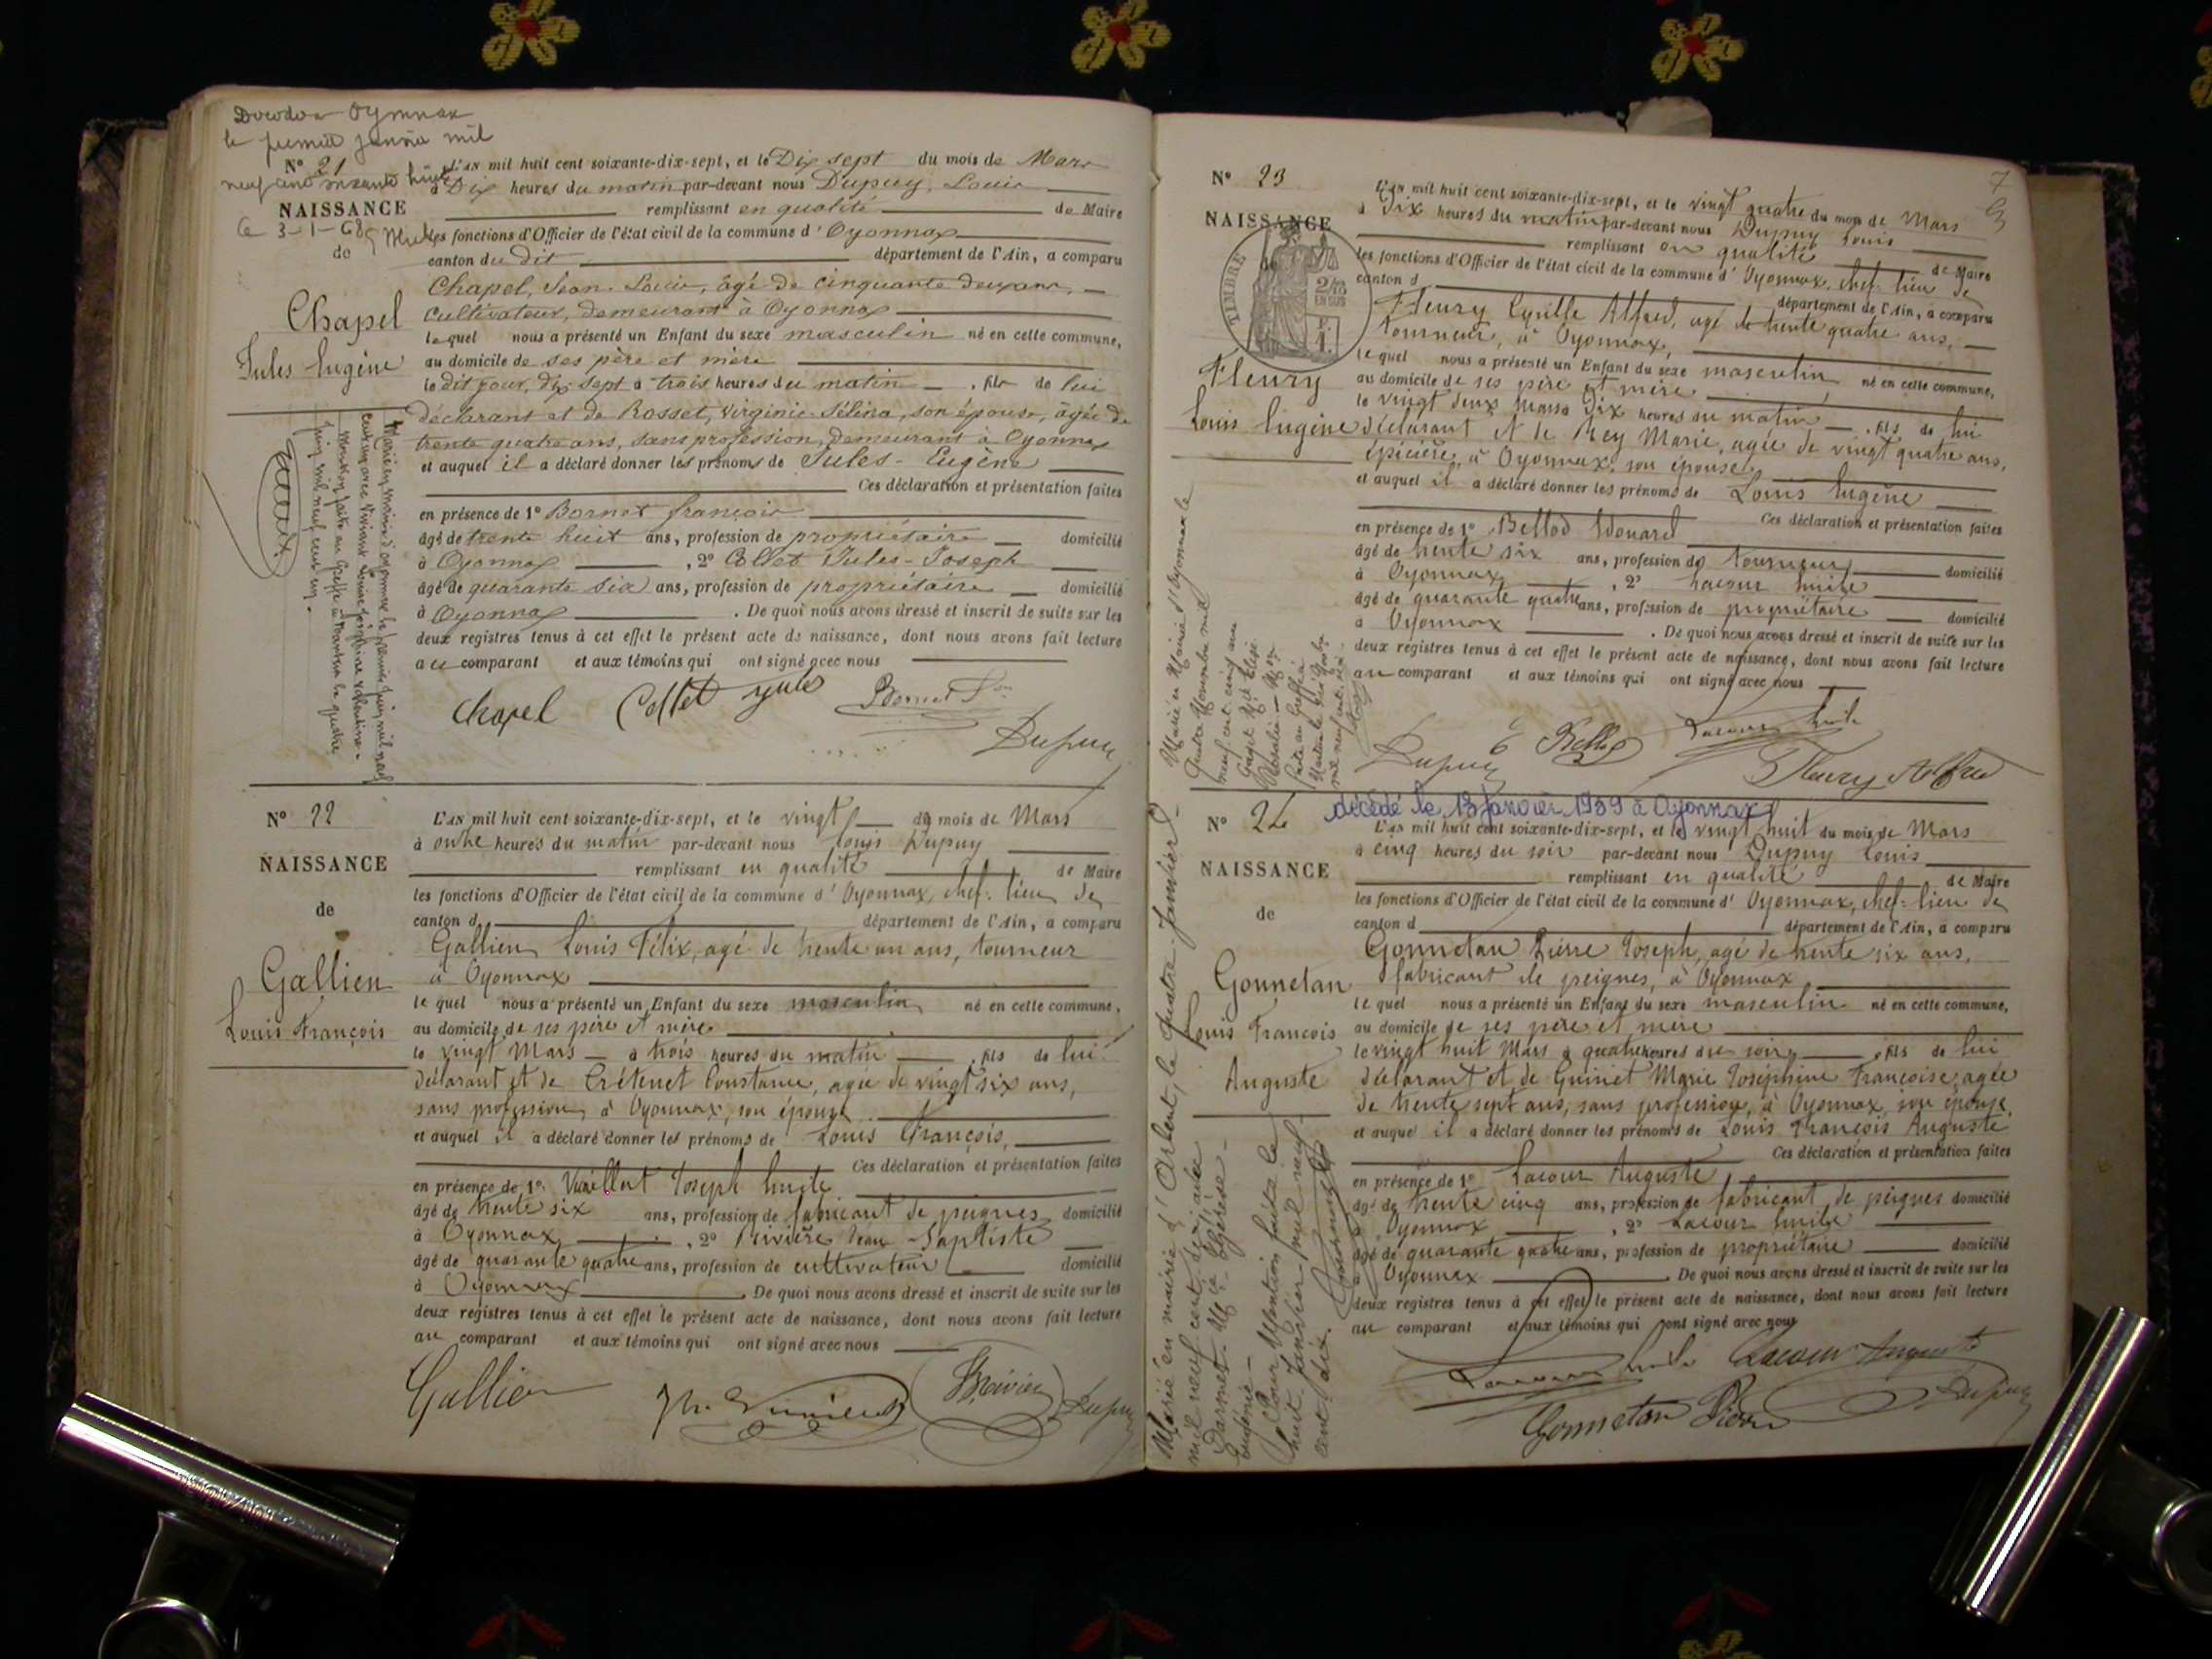 Oyonnax
le premier janvier mil
N° 21
neuf cent soixante huit
Le 3-1-68
NAISSANCE
de
Chapel
Jules Eugène
L'AN mil huit cent soixante-dix-sept, et le Dix sept du mois de Mars
à Dix heures du matin par-devant nous Dupuy, Louis
remplissant en qualité de Maire
les fonctions d'Officier de l'état civil de la commune d' Oyonnax
canton du dit département de l'Ain, a comparu
Chapel, Jean-Louis, âgé de cinquante deux ans,
cultivateur, demeurant à Oyonnax
lequel nous a présenté un Enfant du sexe masculin né en cette commune,
au domicile de ses père et mère
le dit jour, dix sept à trois heures du matin, fils de lui
déclarant et de Rosset, Virginie Sélina, son épouse, âgée de
trente quatre ans, sans profession, demeurant à Oyonnax
et auquel il a déclaré donner les prénoms de Jules-Eugène
Ces déclaration et présentation faites
en présence de 1° Bornet françois
âgé de trente huit ans, profession de propriétaire domicilié
à Oyonnax, 2° Collet Jules-Joseph
âgé de quarante six ans, profession de propriétaire domicilié
à Oyonnax. De quoi nous avons dressé et inscrit de suite sur les
deux registres tenus à cet effet le présent acte de naissance, dont nous avons fait lecture
au comparant et aux témoins qui ont signé avec nous
Marié en mairie d'Oyonnax le premier juin mil neuf
cent un avec Viviant Louise Joséphine Valentine.
Mention faite au Greffe à Nantua le quatre
juin mil neuf cent un.
Chapel Collet Jules Bornet Dupuy
N° 22
NAISSANCE
de
Gallien
Louis François
L'AN mil huit cent soixante-dix-sept, et le vingt du mois de Mars
à onze heures du matin par-devant nous Louis Dupuy
remplissant en qualité de Maire
les fonctions d'Officier de l'état civil de la commune d' Oyonnax, chef-lieu de
canton d département de l'Ain, a comparu
Gallien Louis Félix, agé de trente un ans, tourneur
à Oyonnax
lequel nous a présenté un Enfant du sexe masculin né en cette commune,
au domicile de ses père et mère
le vingt Mars à trois heures du matin, fils de lui
déclarant et de Crétenet Constance, agée de vingt six ans,
sans profession, à Oyonnax, son épouse
et auquel il a déclaré donner les prénoms de Louis François,
Ces déclaration et présentation faites
en présence de 1° Vuaillat Joseph
âgé de trente six ans, profession de fabricant de peignes domicilié
à Oyonnax, 2° Rivière Jean-Baptiste
âgé de quarante quatre ans, profession de cultivateur domicilié
à Oyonnax. De quoi nous avons dressé et inscrit de suite sur les
deux registres tenus à cet effet le présent acte de naissance, dont nous avons fait lecture
au comparant et aux témoins qui ont signé avec nous
Gallien Rivière Dupuy
7
N° 23
NAISSANCE
TIMBRE
2/10
EN SUS
Fleury
Louis Eugène
L'AN mil huit cent soixante-dix-sept, et le vingt quatre du mois de Mars
à Dix heures du matin par-devant nous Dupuy Louis
remplissant en qualité de Maire
les fonctions d'Officier de l'état civil de la commune d' Oyonnax, chef-lieu de
canton d département de l'Ain, a comparu
Fleury Cyrille Alfred, agé de trente quatre ans,
tourneur, à Oyonnax,
lequel nous a présenté un Enfant du sexe masculin né en cette commune,
au domicile de ses père et mère
le vingt deux Mars à Dix heures du matin, fils de lui
déclarant et de Rey Marie, agée de vingt quatre ans,
épicière, à Oyonnax, son épouse
et auquel il a déclaré donner les prénoms de Louis Eugène
Ces déclaration et présentation faites
en présence de 1° Bellod Edouard
âgé de trente six ans, profession de tourneur domicilié
à Oyonnax, 2° Lacour Emile
âgé de quarante quatre ans, profession de propriétaire domicilié
à Oyonnax. De quoi nous avons dressé et inscrit de suite sur les
deux registres tenus à cet effet le présent acte de naissance, dont nous avons fait lecture
au comparant et aux témoins qui ont signé avec nous
Marié en Mairie d'Oyonnax le
quatre Novembre mil
neuf cent cinq
Dupuy E Bellod Lacour Emile
Fleury Alfred
décédé le 13 Janvier 1939 à Oyonnax
N° 24
NAISSANCE
de
Gonnetan
Louis François
Auguste
L'AN mil huit cent soixante-dix-sept, et le vingt huit du mois de Mars
à cinq heures du soir par-devant nous Dupuy Louis
remplissant en qualité de Maire
les fonctions d'Officier de l'état civil de la commune d' Oyonnax, chef-lieu de
canton d département de l'Ain, a comparu
Gonnetan Pierre Joseph, agé de trente six ans,
fabricant de peignes, à Oyonnax
lequel nous a présenté un Enfant du sexe masculin né en cette commune,
au domicile de ses père et mère
le vingt huit Mars à quatre heures du soir, fils de lui
déclarant et de Guinet Marie Joséphine Françoise, agée
de trente sept ans, sans profession, à Oyonnax, son épouse,
et auquel il a déclaré donner les prénoms de Louis François Auguste
Ces déclaration et présentation faites
en présence de 1° Lacour Auguste
âgé de trente cinq ans, profession de fabricant de peignes domicilié
à Oyonnax, 2° Lacour Emile
âgé de quarante quatre ans, profession de propriétaire domicilié
à Oyonnax. De quoi nous avons dressé et inscrit de suite sur les
deux registres tenus à cet effet le présent acte de naissance, dont nous avons fait lecture
au comparant et aux témoins qui ont signé avec nous
Marié en mairie d'Arbent, le quatre Janvier
mil neuf cent dix avec
Pour Mention faite le
huit Janvier mil neuf
cent dix.
Lacour Emile Lacour Auguste
Gonnetan Pierre Dupuy